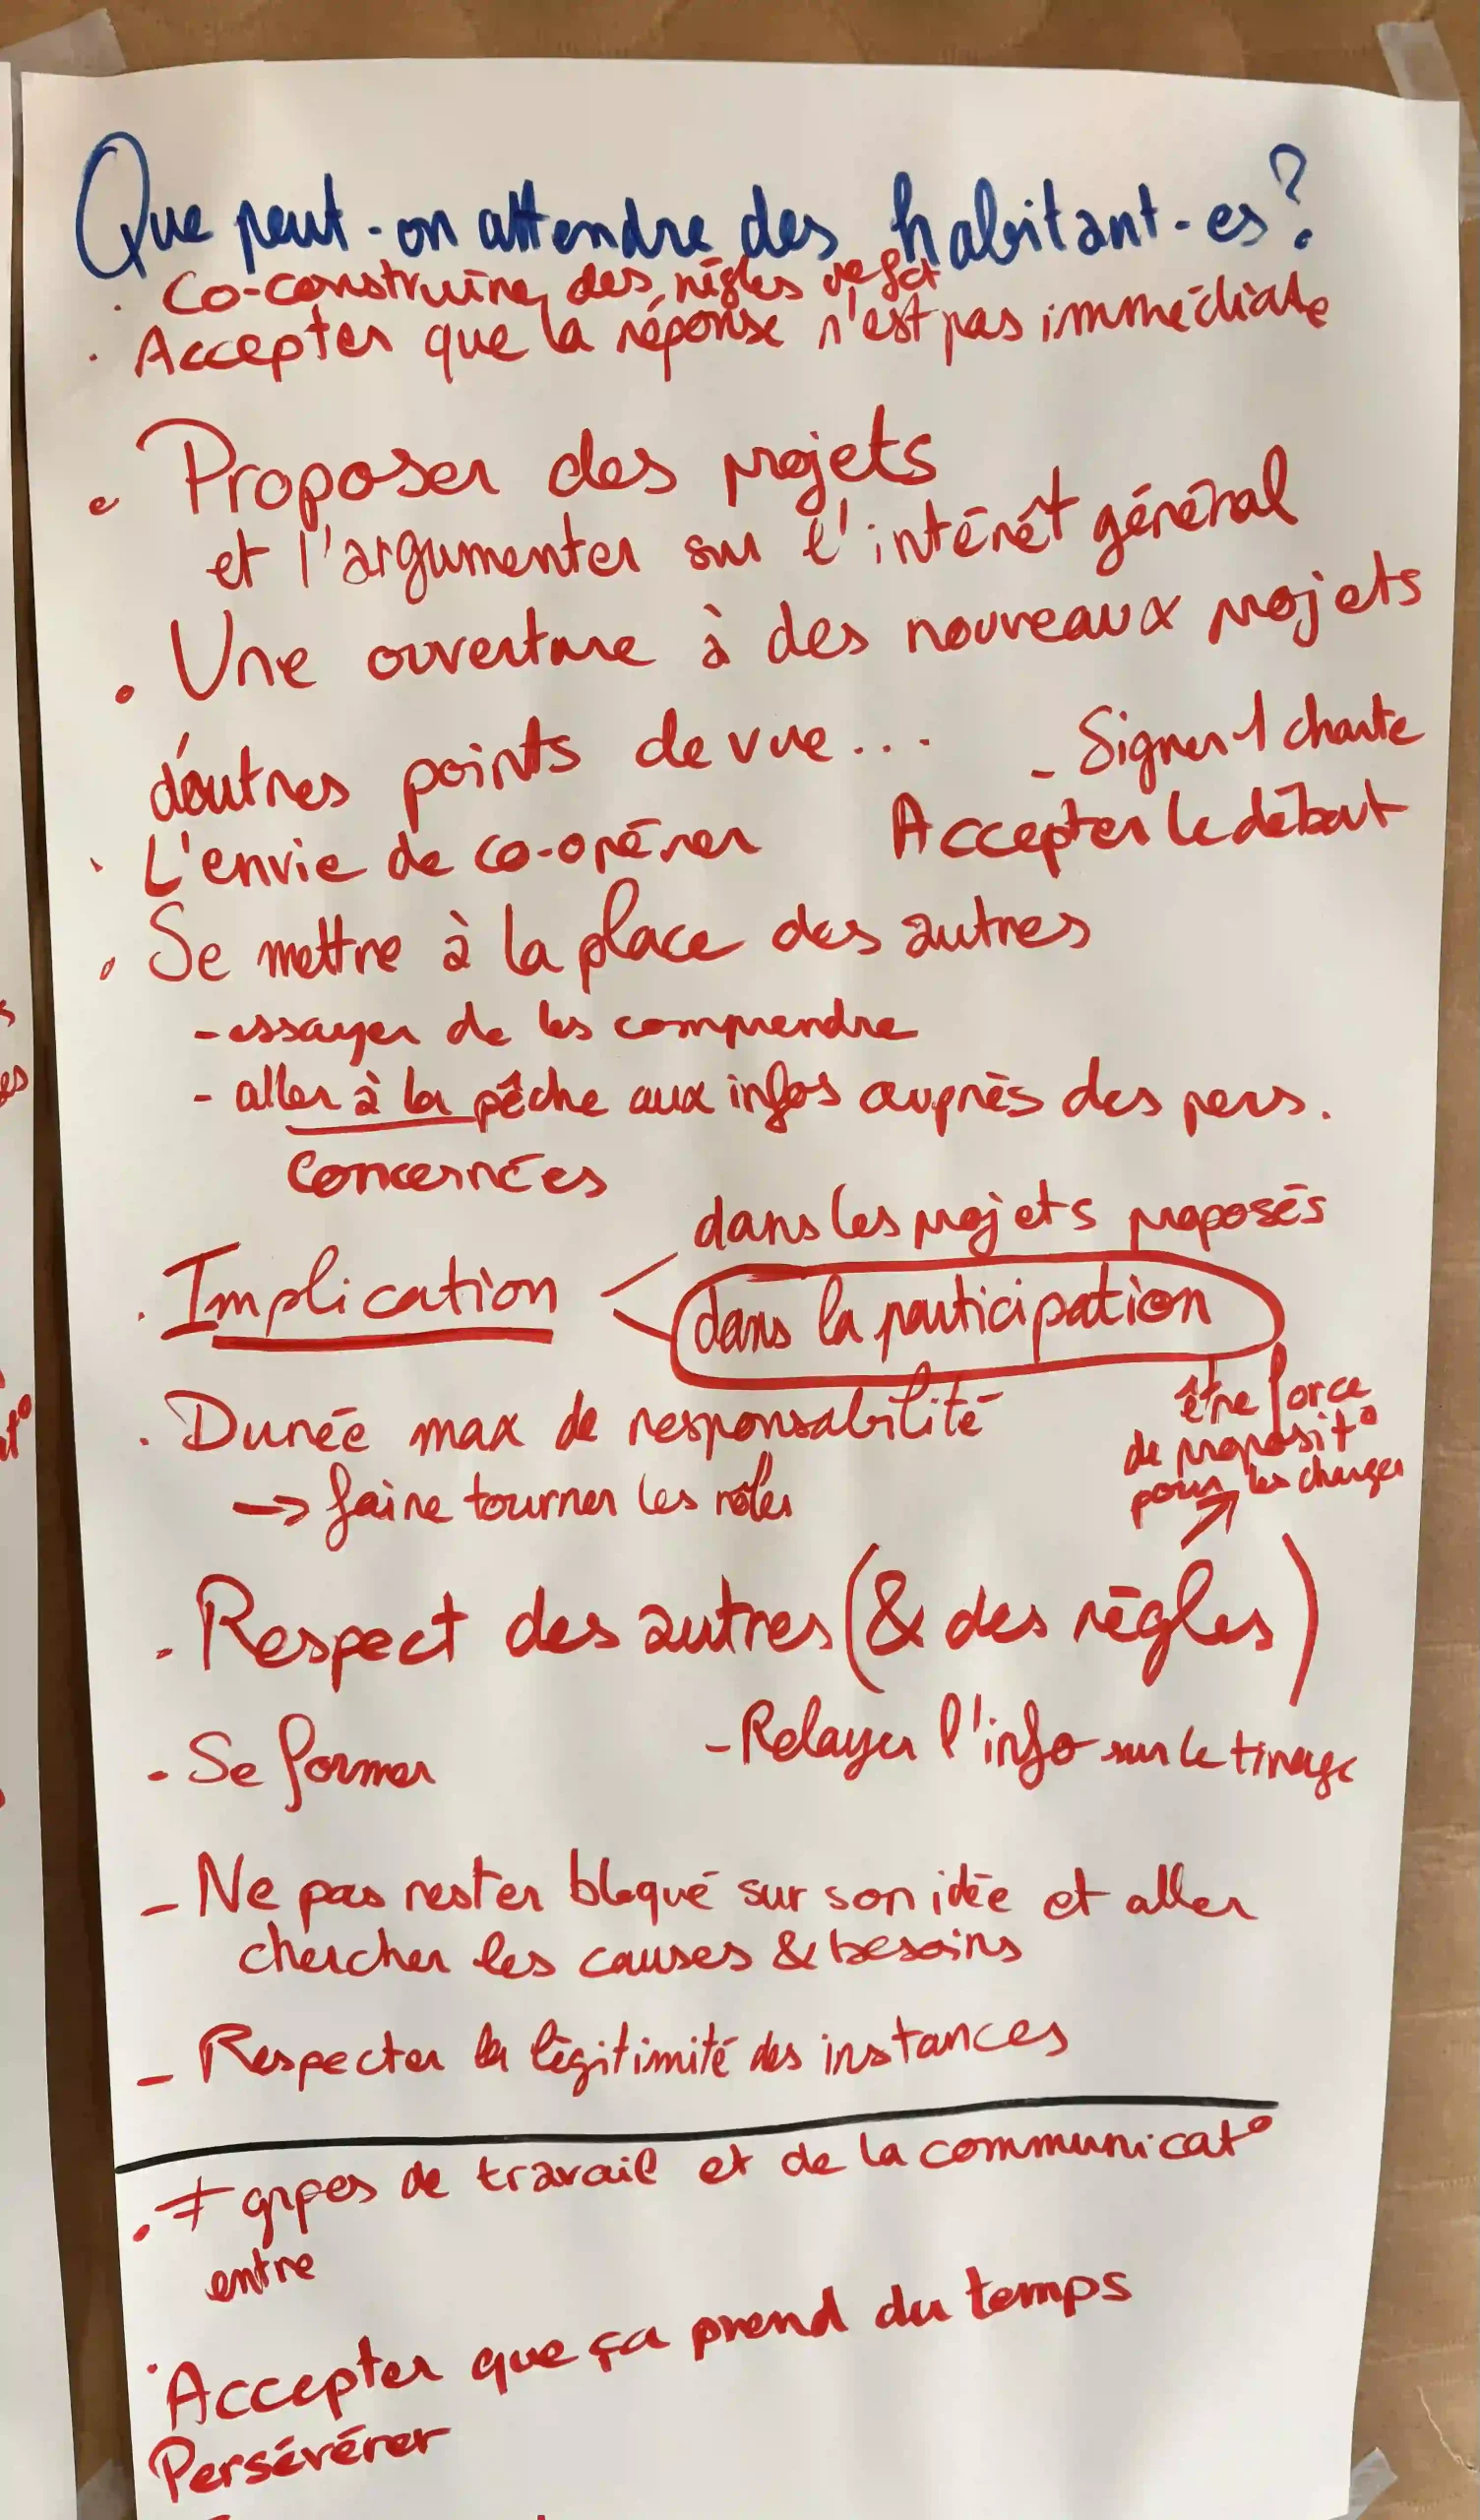 Que peut-on attendre des habitant-es?
. Co-construire des règles
. Accepter que la réponse n'est pas immédiate
. Proposer des projets
et l'argumenter sur l'intérêt général
. Une ouverture à des nouveaux projets
d'autres points de vue...
- Signer 1 charte
. L'envie de co-opérer
Accepter le débat
. Se mettre à la place des autres
- essayer de les comprendre
- aller à la pêche aux infos auprès des pers.
concernées
. Implication <
dans les projets proposés
dans la participation
. Durée max de responsabilité
-> faire tourner les rôles
être force
de proposit°
pour les changer
. Respect des autres (& des règles)
- Se former
- Relayer l'info sur le tirage
- Ne pas rester bloqué sur son idée et aller
chercher les causes & besoins
- Respecter la légitimité des instances
. ≠ grpes de travail et de la communicat°
entre
. Accepter que ça prend du temps
Persévérer